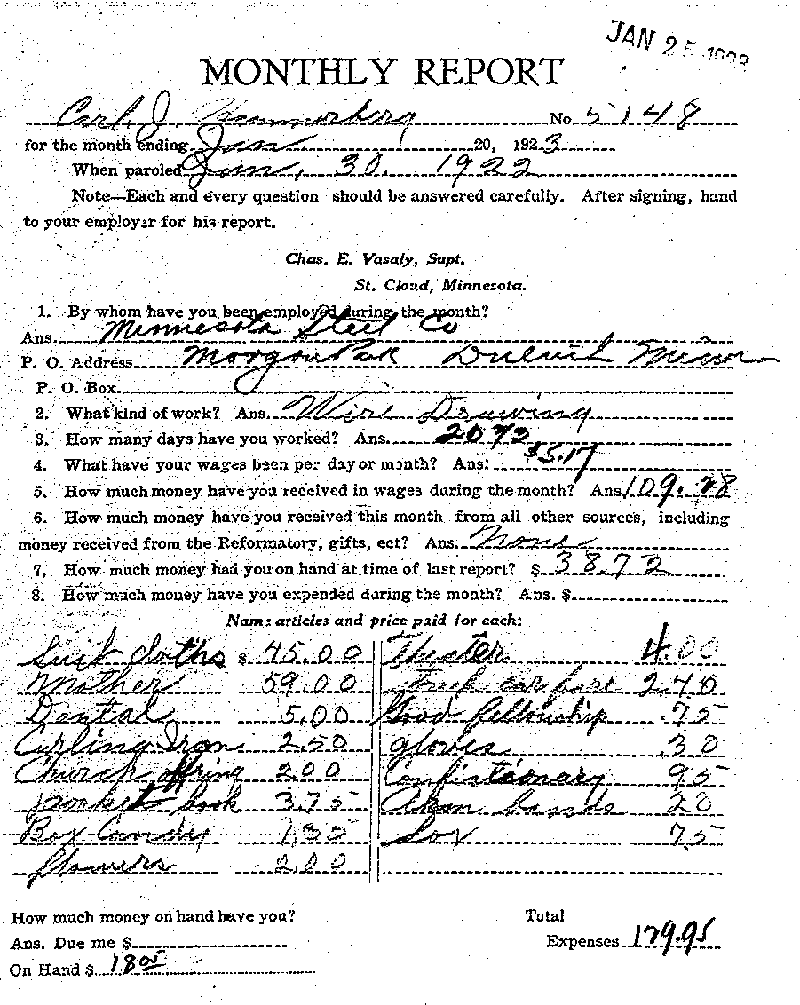 JAN 25 1923
MONTHLY REPORT
Carl J. No 5148
for the month ending Jan 20, 1923
When paroled Jan, 30. 1922
Note—Each and every question should be answered carefully. After signing, hand
to your employer for his report.
Chas. E. Vasaly, Supt.
St. Cloud, Minnesota.
1. By whom have you been employed during the month?
Ans. Minnesota Steel Co
P. O. Address Morgan Park Duluth Minn
P. O. Box
2. What kind of work? Ans. Wire Drawing
3. How many days have you worked? Ans.
4. What have your wages been per day or month? Ans: $5.17
5. How much money have you received in wages during the month? Ans.
6. How much money have you received this month from all other sources, including
money received from the Reformatory, gifts, ect? Ans. None
7. How much money had you on hand at time of last report? $ 38.72
8. How much money have you expended during the month? Ans. $
Name articles and price paid for each:
Suit cloths $ 45.00 Theater 4.00
Mother 59.00 car fare 2.40
Dental 5.00 Good fellowship .75
Curling Iron 2.50 gloves .30
Church offring 2.00 Confistionary 95
pocket book 3.75 20
Box Candy Sox 75
flowers 2.00
How much money on hand have you? Total
Ans. Due me $ Expenses
On Hand $ 18.05